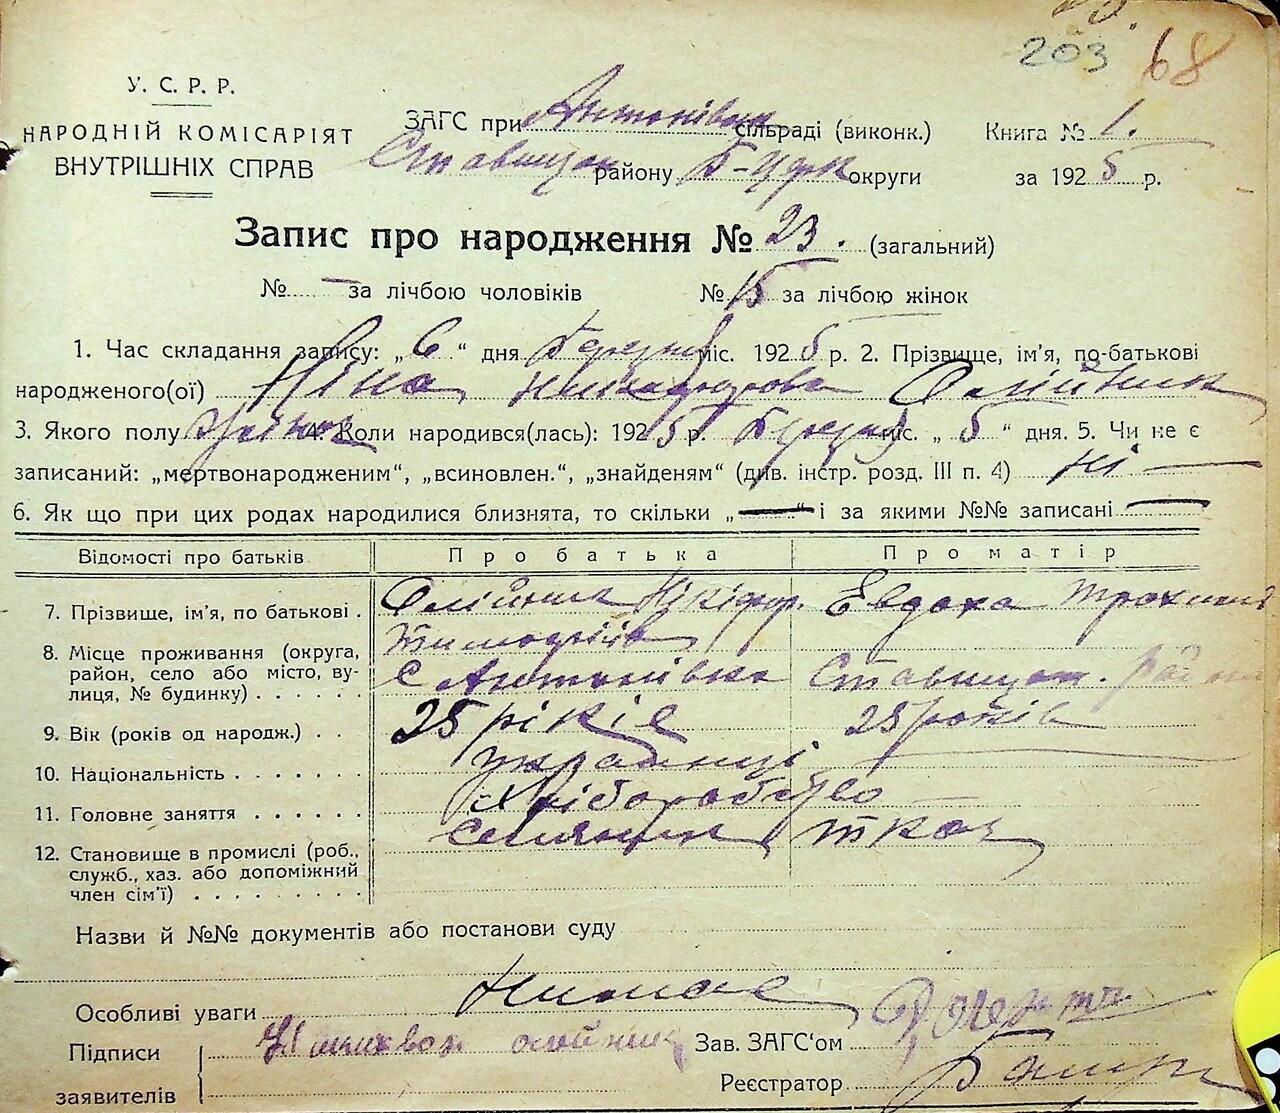 203 68
У. С. Р. Р.
НАРОДНІЙ КОМІСАРІЯТ
ВНУТРІШНІХ СПРАВ
ЗАГС при Антонівск сільраді (виконк.) Книга № 1.
Ставищан району Б-Церк округи за 1925 р.
Запис про народження № 23. (загальний)
№ — за лічбою чоловіків № 15 за лічбою жінок
1. Час складання запису: „6“ дня Березня міс. 1925 р. 2. Прізвище, ім’я, по-батькові
народженого(ої) Ніна Олійник
3. Якого полу жінок 4. Коли народився(лась): 1925 р. Березня міс. „5“ дня. 5. Чи не є
записаний: „мертвонародженим“, „всиновлен.“, „знайденям“ (див. інстр. розд. III п. 4) ні —
6. Як що при цих родах народилися близнята, то скільки „—“ і за якими №№ записані —
Відомості про батьків Про батька Про матір
7. Прізвище, ім’я, по батькові . Олійник Нікіфор. Евдоха Трохимів
Тимофіїв
8. Місце проживання (округа,
район, село або місто, ву-
лиця, № будинку) . . . . . . с Антонівка Ставищан. район
9. Вік (років од народж.) . . 25 ріків 25 років
10. Національність . . . . . . . українці
11. Головне заняття . . . . . . Хліборобство
12. Становище в промислі (роб.,
служб., хаз. або допоміжний
член сім’ї) . . . . . . . . . селянин
Назви й №№ документів або постанови суду
Особливі уваги Немає
Підписи
заявителів Олійник
Зав. ЗАГС‘ом
Реєстратор